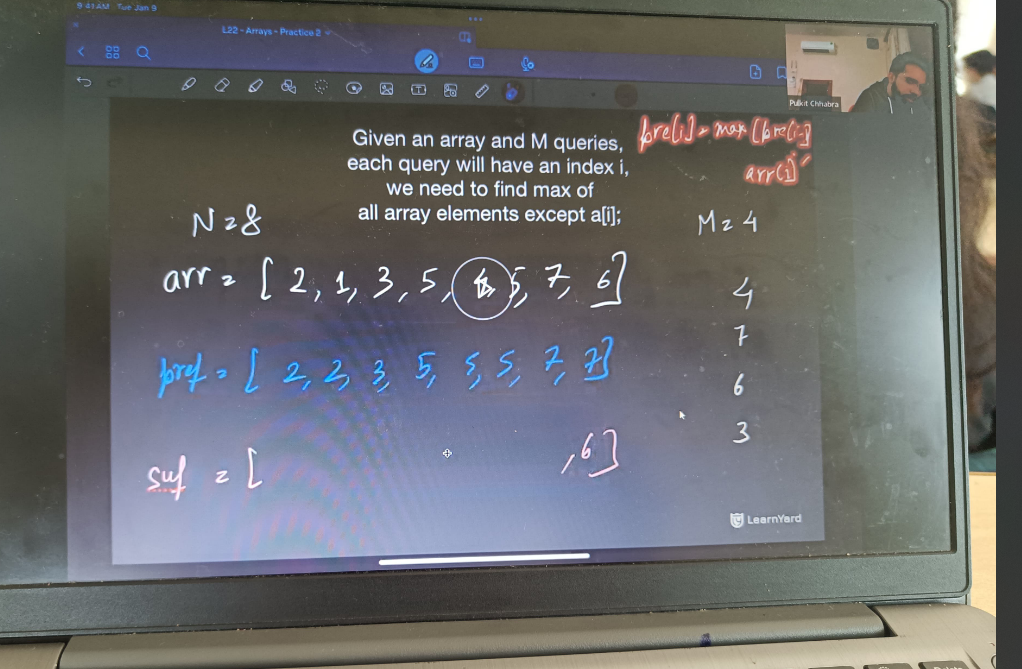 9:41 AM Tue Jan 9
L22 - Arrays - Practice 2
Pulkit Chhabra
Given an array and M queries,
each query will have an index i,
we need to find max of
all array elements except a[i];
pre[i] = max (pre[i-1]
arr[i]
N = 8
M = 4
arr = [ 2, 1, 3, 5, 5, 7, 6]
4
7
pref = [ 2, 2, 3, 5, 5, 5, 7, 7]
6
3
suf = [ , 6]
LearnYard